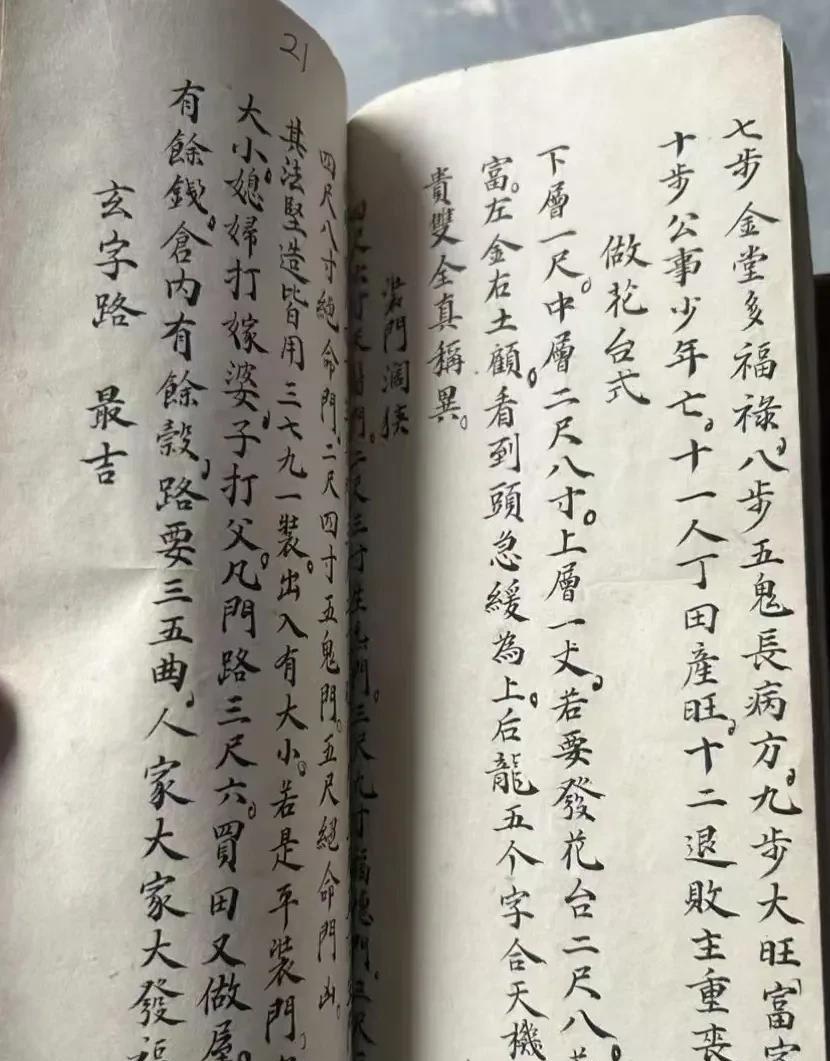 七步金堂多福祿。八步五鬼長病方。九步大旺富
十步公事少年亡。十一人丁田產旺。十二退敗主重喪
做花台式
下層一尺。中層二尺八寸。上層一丈。若要發花台二尺八。
富。左金右土顧。看到頭急緩為上。后龍五个字合天機
貴雙全真稱異。
裝門濶狹
門。二尺三寸生門。三尺九寸福德門。
四尺八寸絕命門。二尺四寸五鬼門。五尺絕命門凶。
其法堅造皆用三七九一裝。出入有大小。若是平裝門。
大小。媳婦打嫁婆。子打父。凡門路三尺六。買田又做屋。
有餘錢。倉內有餘穀。路要三五曲。人家大家大發福
玄字路 最吉
21